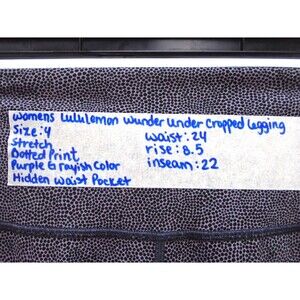 womens Lululemon Wunder Under Cropped Legging
Size: 4
waist: 24
Stretch
rise: 8.5
Dotted Print
inseam: 22
Purple Grayish Color
Hidden Waist Pocket